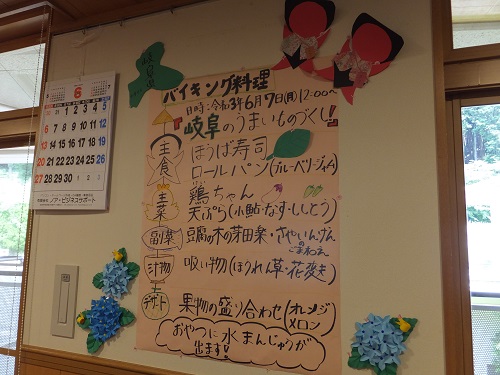 岐阜県
バイキング料理
日時:令和3年6月7日(月)12:00~
岐阜のうまいものづくし!
主食
ほうば寿司
ロールパン(ブルーベリージャム)
主菜
鶏ちゃん
天ぷら(小鮎・なす・ししとう)
副菜
豆腐の木の芽田楽・さやいんげん
のごまあえ
汁物
吸い物(ほうれん草・花麩)
デザート
果物の盛り合わせ(オレンジ
メロン)
おやつに水まんじゅうが
出ます!
6
1 2 3 4 5
6 7 8 9 10 11 12
13 14 15 16 17 18 19
20 21 22 23 24 25 26
27 28 29 30
ノア・ビジネスサポート